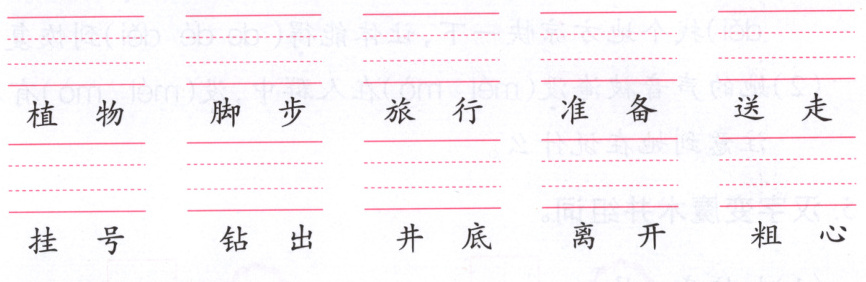 植物 脚步 旅行 准备 送走
挂号 钻出 井底 离开 粗心